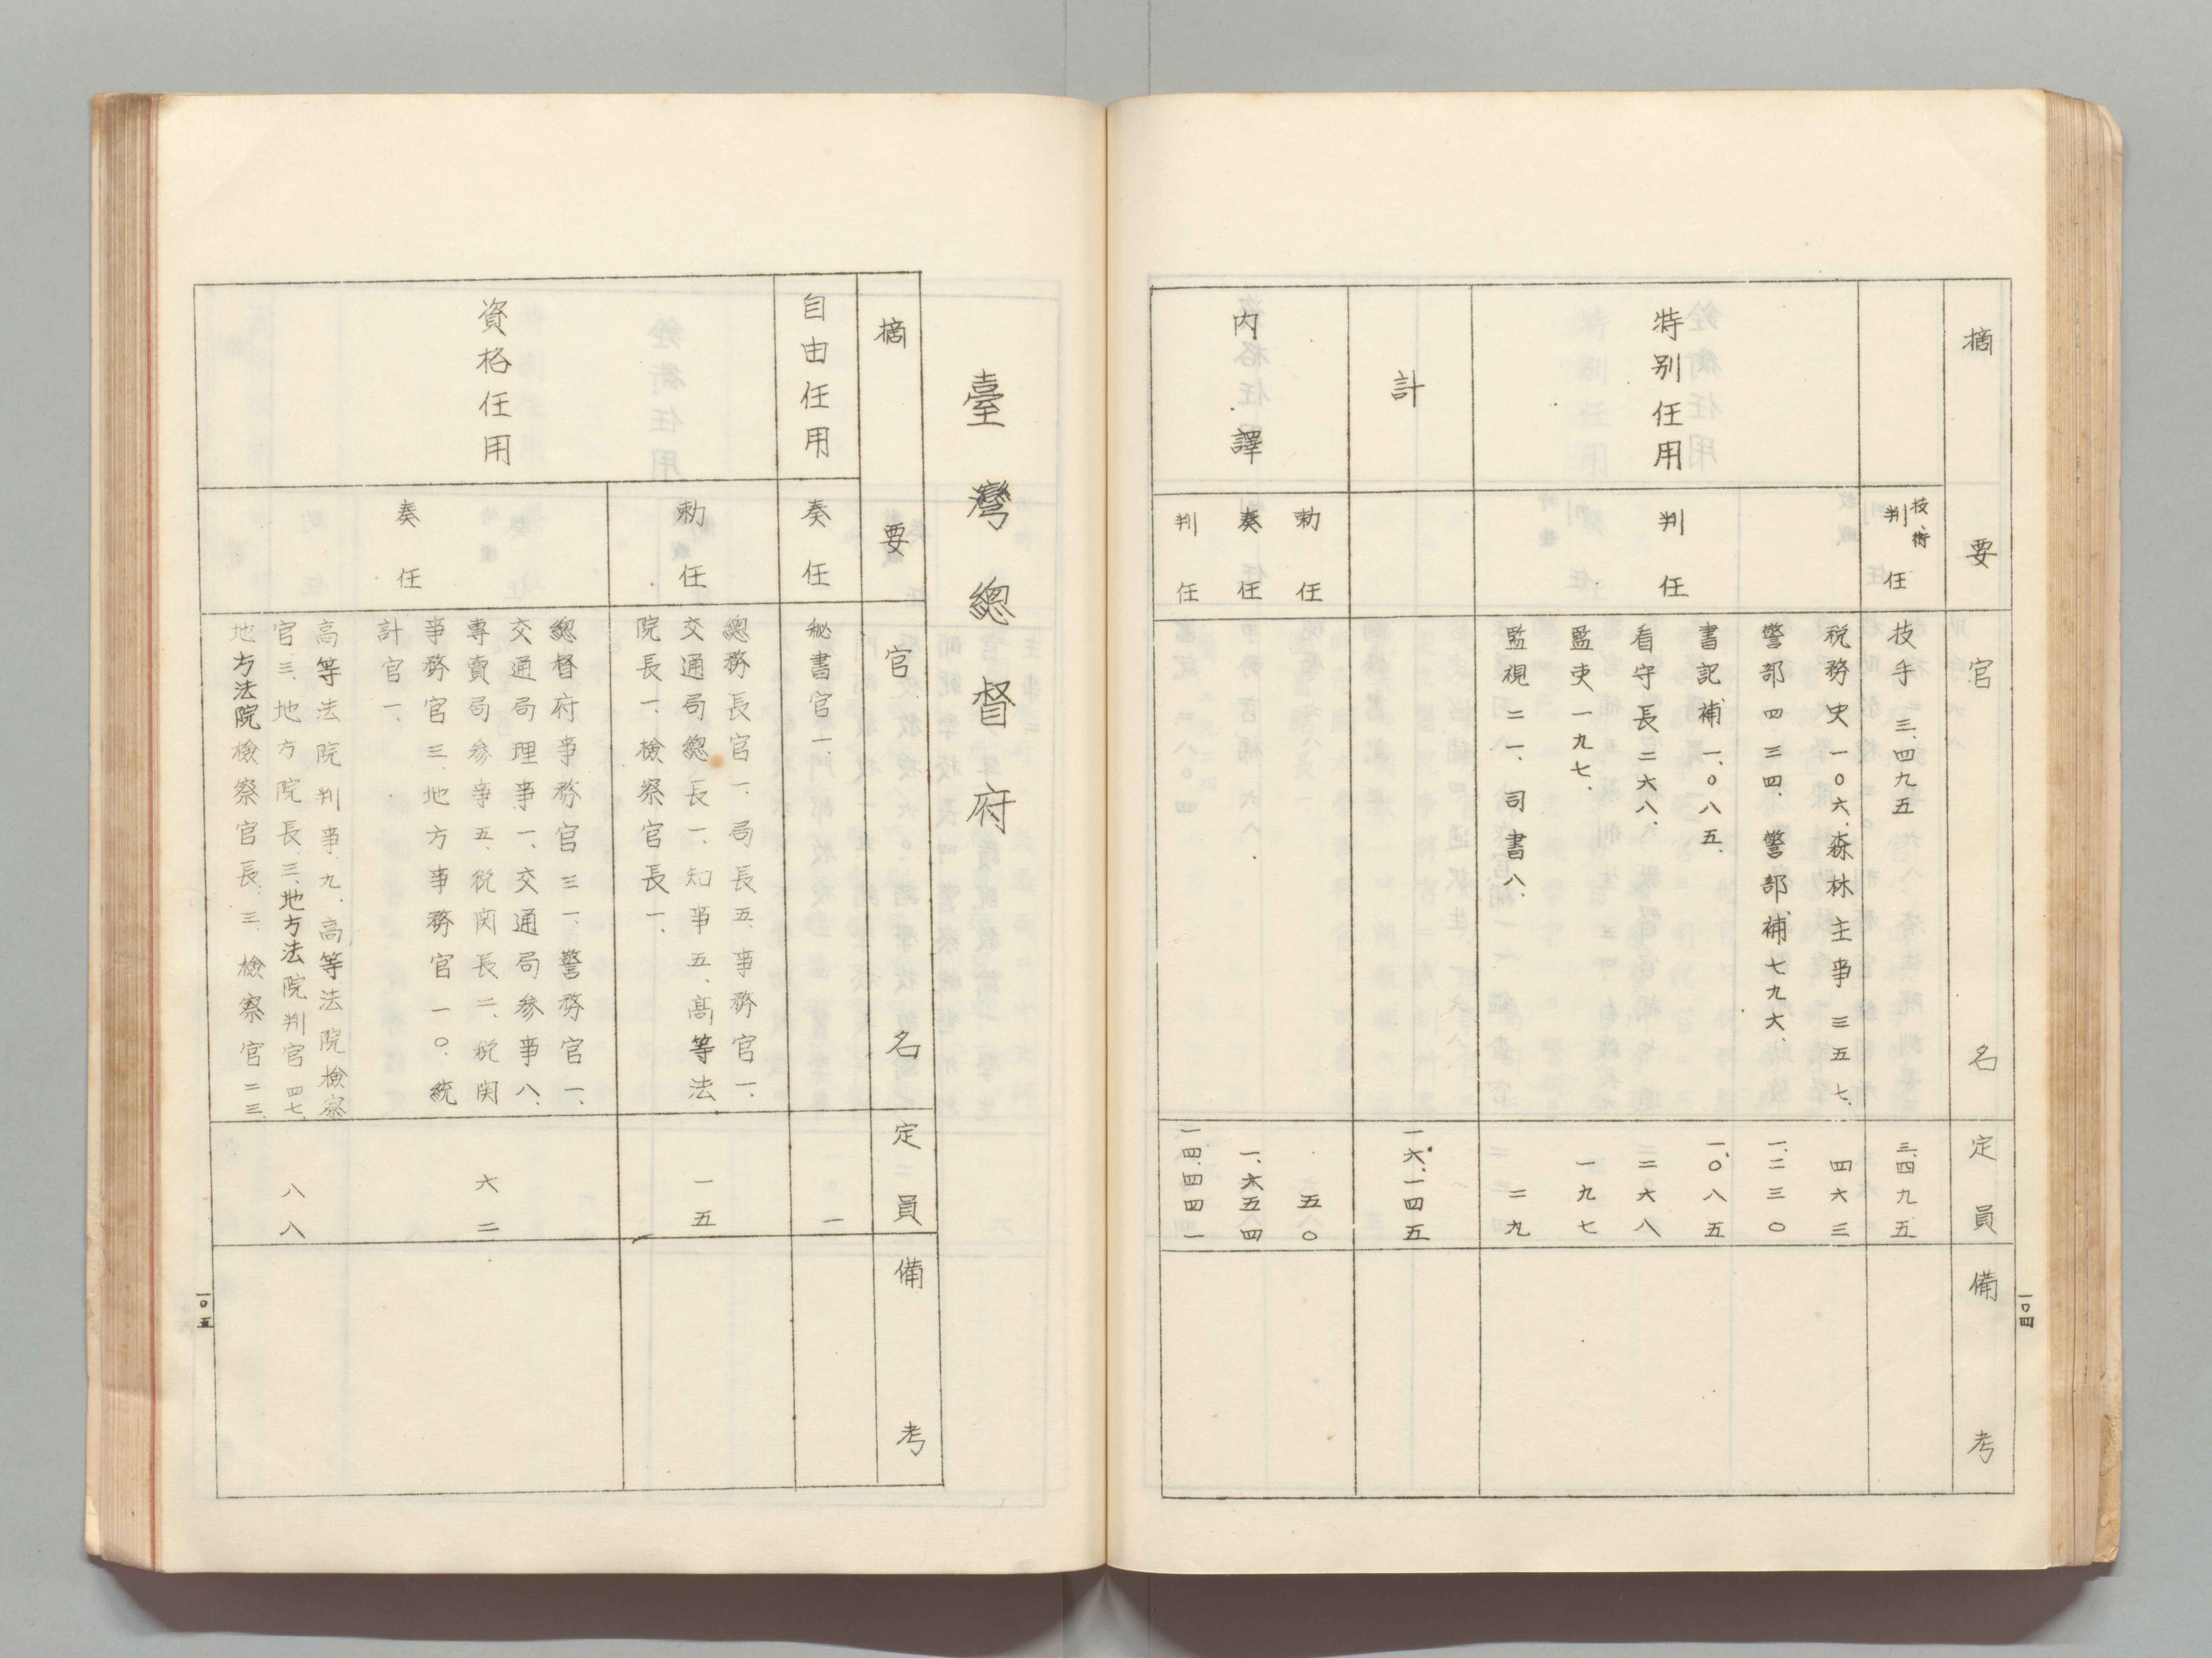 摘要
官名
定員
備考
技術
判任
技手 三、四九五
三、四九五
特別任用
判任
税務吏 一〇六、森林主事 三五七、
四六三
警部 四三四、警部補 七九六、
一、二三〇
書記補 一、〇八五、
一、〇八五
看守長 二六八、
二六八
監吏 一九七、
一九七
監視 二一、司書 八、
二九
計
一六、一四五
内譯
勅任
五〇
奏任
一、六五四
判任
一四、四四一
一〇四
臺灣總督府
摘要
官名
定員
備考
自由任用
奏任
秘書官 一、
一
資格任用
勅任
總務長官 一、局長 五、事務官 一、
交通局總長 一、知事 五、高等法
院長 一、檢察官長 一、
一五
奏任
總督府事務官 三一、警務官 一、
交通局理事 一、交通局参事 八、
專賣局参事 五、税関長 二、税関
事務官 三、地方事務官 一〇、統
計官 一、
六二
高等法院判事 九、高等法院檢察
官 三、地方院長 三、地方法院判官 四七、
地方法院檢察官長 三、檢察官 二三、
八八
一〇五